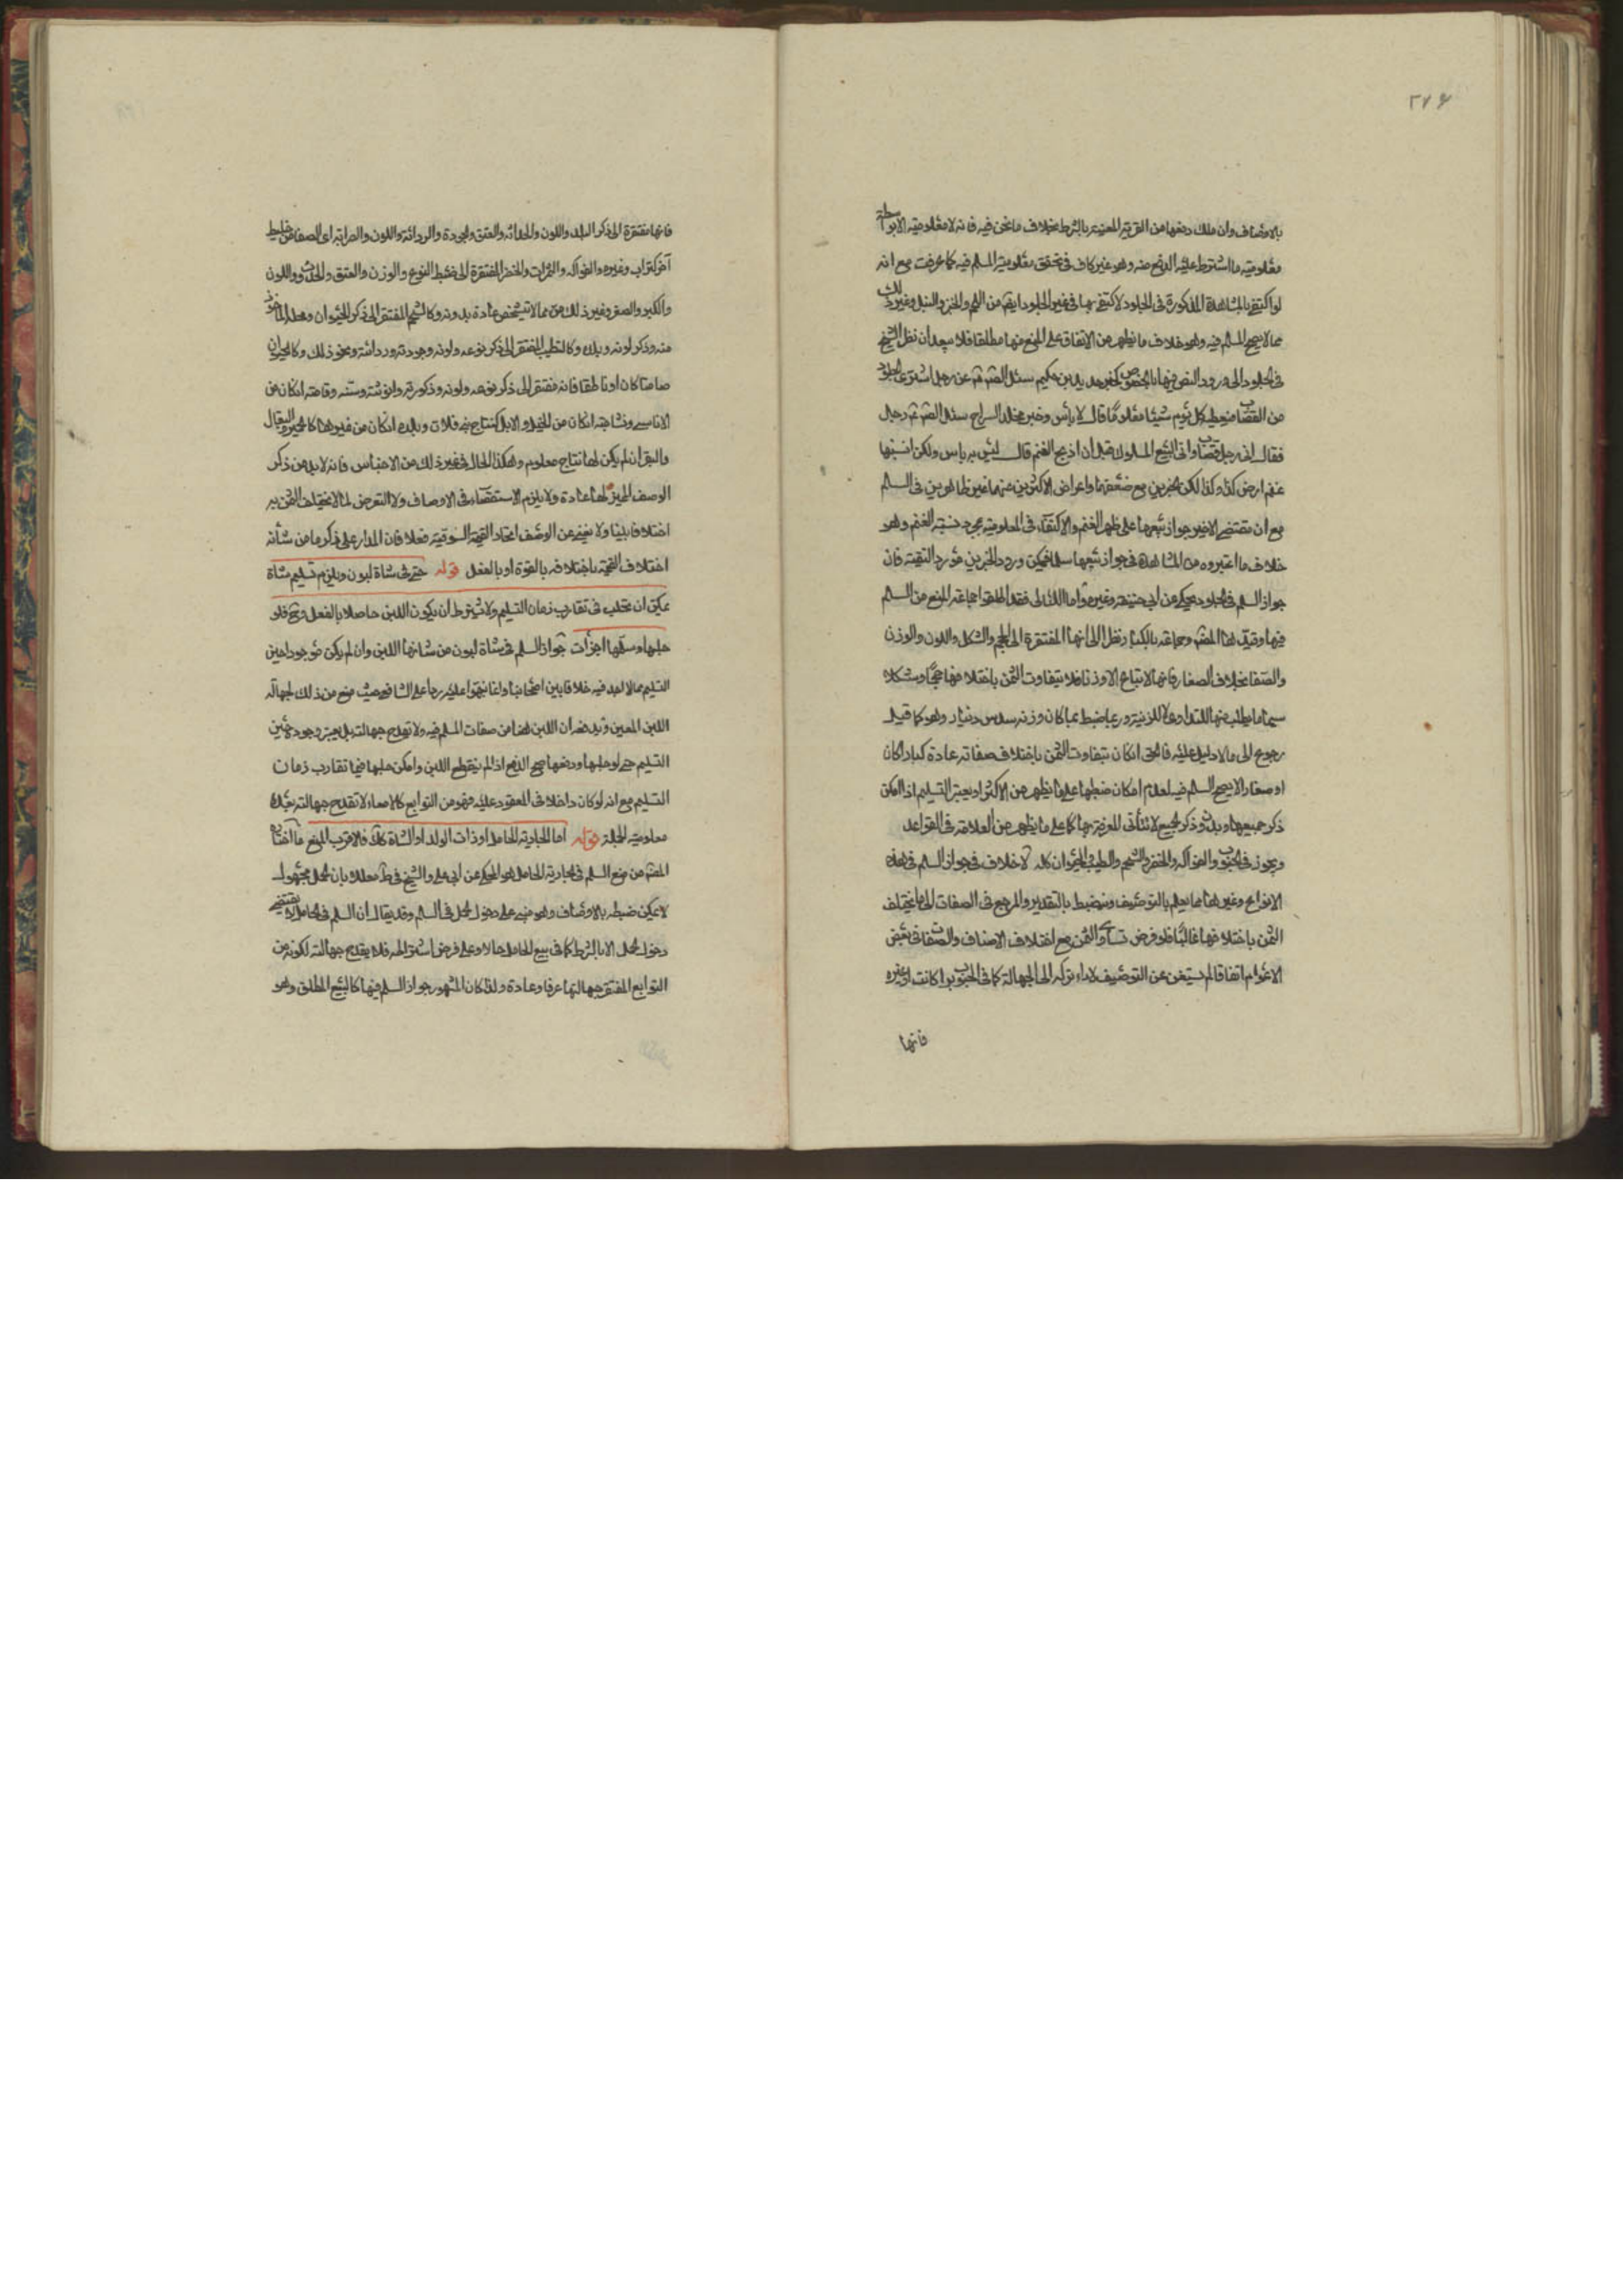 ٢٧٤
بالاوصاف وان ملك دفعها من القرية المعينة بالشرط بخلاف ما نحن فيه فانه لا معلومية الا بواسطة
معلومية ما اشترط عليه الدفع منه وهو غير كاف في تحقق معلومية المسلم فيه كما عرفت مع انه
لو اكتفى بالمشاهدة المذكورة في الجلود لاكتفى بها في غير الجلود ايضا من اللحم والخبز والنبل وغير ذلك
مما لا يصح السلم فيه وهو خلاف ما يظهر من الاتفاق على المنع منها مطلقا فلا يبعد ان نظر الشيخ
في الجلود الى ورود النص فيها بالخصوص كخبر حديد بن حكيم سئل الصم عن رجل اشترى الجلود
من القصاب فيعطيه كل يوم شيئا معلوما قال لا باس وخبر مخلد السراج سئل الصم رجل
فقال انى رجل قصاب وانى ابيع المسوك قبل ان اذبح الغنم قال ليس به باس ولكن انسبها
غنم ارض كذا وكذا لكن الخبرين مع ضعفهما واعراض الاكثرين عنهما غير ظاهرين في السلم
مع ان مقتضى الاخير جواز بيعها على ظهر الغنم والاكتفاء في المعلومية بمجرد نسبة الغنم وهو
خلاف ما اعتبروه من المشاهدة في جواز بيعها سلما فيمكن ورود الخبرين مورد التقية فان
جواز السلم في الجلود محكى عن ابى حنيفة وغيره واما اللئالى فقد اطلق جماعة المنع من السلم
فيها وقيده هذا المصم وجماعة بالكبار نظرا الى انها المفتقرة الى الحجم والشكل واللون والوزن
والصفا بخلاف الصغار فانها لا تباع الا وزنا فلا يتفاوت الثمن باختلافها حجما وشكلا
سيما ما يطلب منها للتداوى لا للزينة وربما ضبط بما كان وزنه سدس دينار وهو كما قيل
رجوع الى ما لا دليل عليه فالحق ان كان يتفاوت الثمن باختلاف صفاته عادة كبارا كان
او صغارا لا يصح السلم فيه لعدم امكان ضبطها على ما يظهر من الاكثر او يعسر التسليم اذا امكن
ذكر جميعها وبدون ذكر الجميع لا تتأتى المعرفة بها كما على ما يظهر من العلامة في القواعد
ويجوز في الحبوب والفواكه والخضر والشحم والطيب والحيوان كله لا خلاف في جواز السلم في هذه
الانواع وغيرها مما يعلم بالتوصيف وينضبط بالتقدير والمرجع في الصفات الى ما يختلف
الثمن باختلافها غالبا فلو فرض تساوى الثمن مع اختلاف الاصناف والصفات في بعض
الاعوام اتفاقا لم يستغن عن التوصيف لاداء تركه الى الجهالة كما في الحبوب برا كانت او غيره
فانها
فانها مفتقرة الى ذكر البلد واللون والحداثة والعتق والجودة والردائة واللون والصرابة اى الصفا من خليط
آخر كتراب وغيره والفواكه والثمرات والخضر المفتقرة الى ضبط النوع والوزن والعتق والحداثة واللون
والكبر والصغر وغير ذلك مما لا تتشخص عادة بدونه وكالشحم المفتقر الى ذكر الحيوان ومحله الماخوذ
منه وذكر لونه وبلده وكالطيب المفتقر الى ذكر نوعه ولونه وجودته وردائته ونحو ذلك وكالحيوان
صامتا كان او ناطقا فانه مفتقر الى ذكر نوعه ولونه وذكورته وانوثته وسنه وقامته ان كان من
الاناسى ونتاجه ان كان من الخيل والابل كنتاج بنى فلان وبلده ان كان من غيرهما كالحمير والبغال
والبقر ان لم يكن لها نتاج معلوم وهكذا الحال في غير ذلك من الاجناس فانه لا بد من ذكر
الوصف المميز لها عادة ولا يلزم الاستقصاء في الاوصاف ولا التعرض لما لا يختلف الثمن به
اختلافا بينا ولا يغنى عن الوصف اتحاد القيمة السوقية فعلا فان المدار على ذكر ما من شأنه
اختلاف القيمة باختلافه بالقوة او بالفعل قوله حتى في شاة لبون ويلزم تسليم شاة
يمكن ان تحلب في تقارب زمان التسليم ولا يشترط ان يكون اللبن حاصلا بالفعل وح فلو
حلبها وسلمها اجزأت جواز السلم في شاة لبون من شانها اللبن وان لم يكن موجودا حين
التسليم مما لا اجد فيه خلافا بين اصحابنا وانما نبهوا عليه ردا على الشافعى حيث منع من ذلك لجهالة
اللبن المعين ويدفعه ان اللبن هنا من صفات المسلم فيه ولا تقدح جهالته بل يعتبر وجوده حين
التسليم حتى لو حلبها ودفعها صح الدفع اذا لم ينقطع اللبن وامكن حلبها فيما تقارب زمان
التسليم مع انه لو كان داخلا في المعقود عليه فهو من التوابع كالامعاء لا تقدح جهالته بعد
معلومية الجملة قوله اما الجارية الحامل او ذات الولد او الشاة كذلك فالاقرب المنع ما اختاره
المصم من منع السلم في الجارية الحامل هو المحكى عن ابى على والشيخ في ط معللا بان الحمل مجهول
لا يمكن ضبطه بالاوصاف وهو مبنى على دخول الحمل في السلم وقد يقال ان السلم في الحامل لا يقتضى
دخول الحمل الا بالشرط كما في بيع الحامل حالا وعلى فرض اشتراطه فلا يقدح جهالته لكونه من
التوابع المغتفر جهالتها عرفا وعادة ولذا كان المشهور جواز السلم فيها كالبيع المطلق وهو